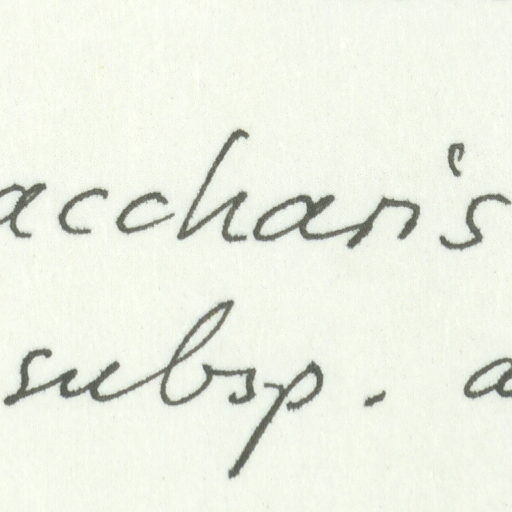 accharis
subsp. a